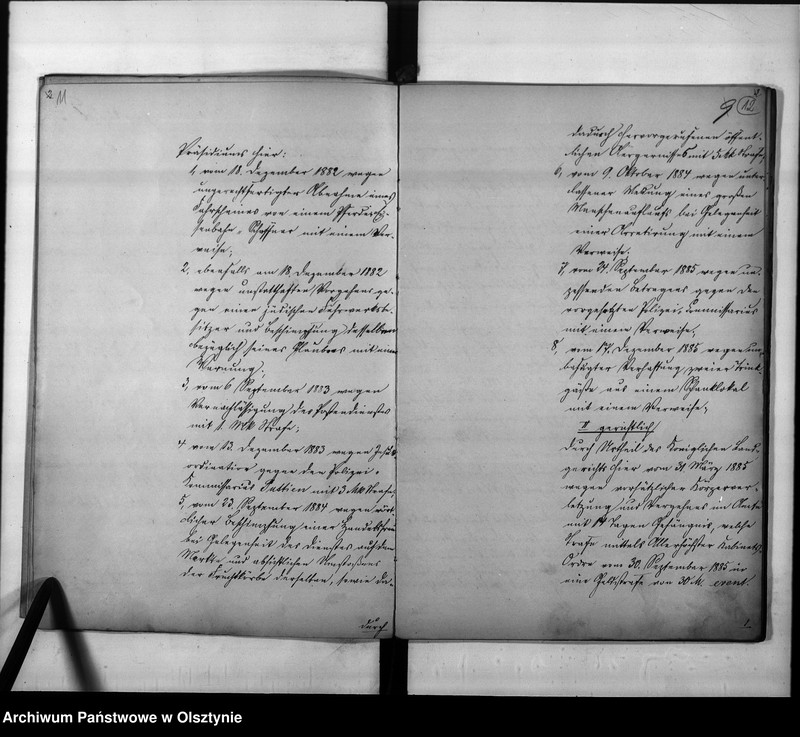 2
11
Präsidiums hier:
1, vom 11. Dezember 1882 wegen
ungerechtfertigter Abnahme eines
Fahrscheines von einem Pferdeei-
senbahn-Schaffner mit einem Ver-
weise;
2, ebenfalls am 18. Dezember 1882
wegen unstatthaften Vorgehens ge-
gen einen jüdischen Fuhrwerksbe-
sitzer und Beschimpfung desselben
bezüglich seines Glaubens mit einer
Warnung;
3, vom 6. September 1883 wegen
Vernachlässigung des Postendienstes
mit 1 Mk Strafe;
4, vom 13. Dezember 1883 wegen Insub-
ordination gegen den Polizei-
Kommissarius mit 3 Mk Strafe;
5, vom 23. September 1884 wegen wört-
licher Beschimpfung einer Handelsfrau
bei Gelegenheit des Dienstes auf dem
Markte und absichtlichen Umstoßens
der Fruchtkörbe derselben, sowie da-
durch
9
12
dadurch hervorgerufenen öffent-
lichen Aergernisses mit 3 Mk Strafe;
6, vom 9. Oktober 1884 wegen unter-
lassener Meldung eines großen
Menschenauflaufs bei Gelegenheit
einer Arretirung mit einem
Verweise;
7, vom 21. September 1885 wegen un-
passenden Betragens gegen den
vorgesetzten Polizei-Kommissarius
mit einem Verweise;
8, vom 17. Dezember 1885 wegen un-
befugter Verhaftung zweier Trink-
gäste aus einem Schanklokal
mit einem Verweise;
II gerichtlich
durch Urtheil des Königlichen Land-
gerichts hier vom 31 März 1885
wegen vorsätzlicher Körperver-
letzung und Vergehens im Amte
mit 14 Tagen Gefängnis, welche
Strafe mittels Allerhöchster Kabinets-
Ordre vom 30. September 1885 in
eine Geldstrafe von 30 M. event.
Archiwum Państwowe w Olsztynie